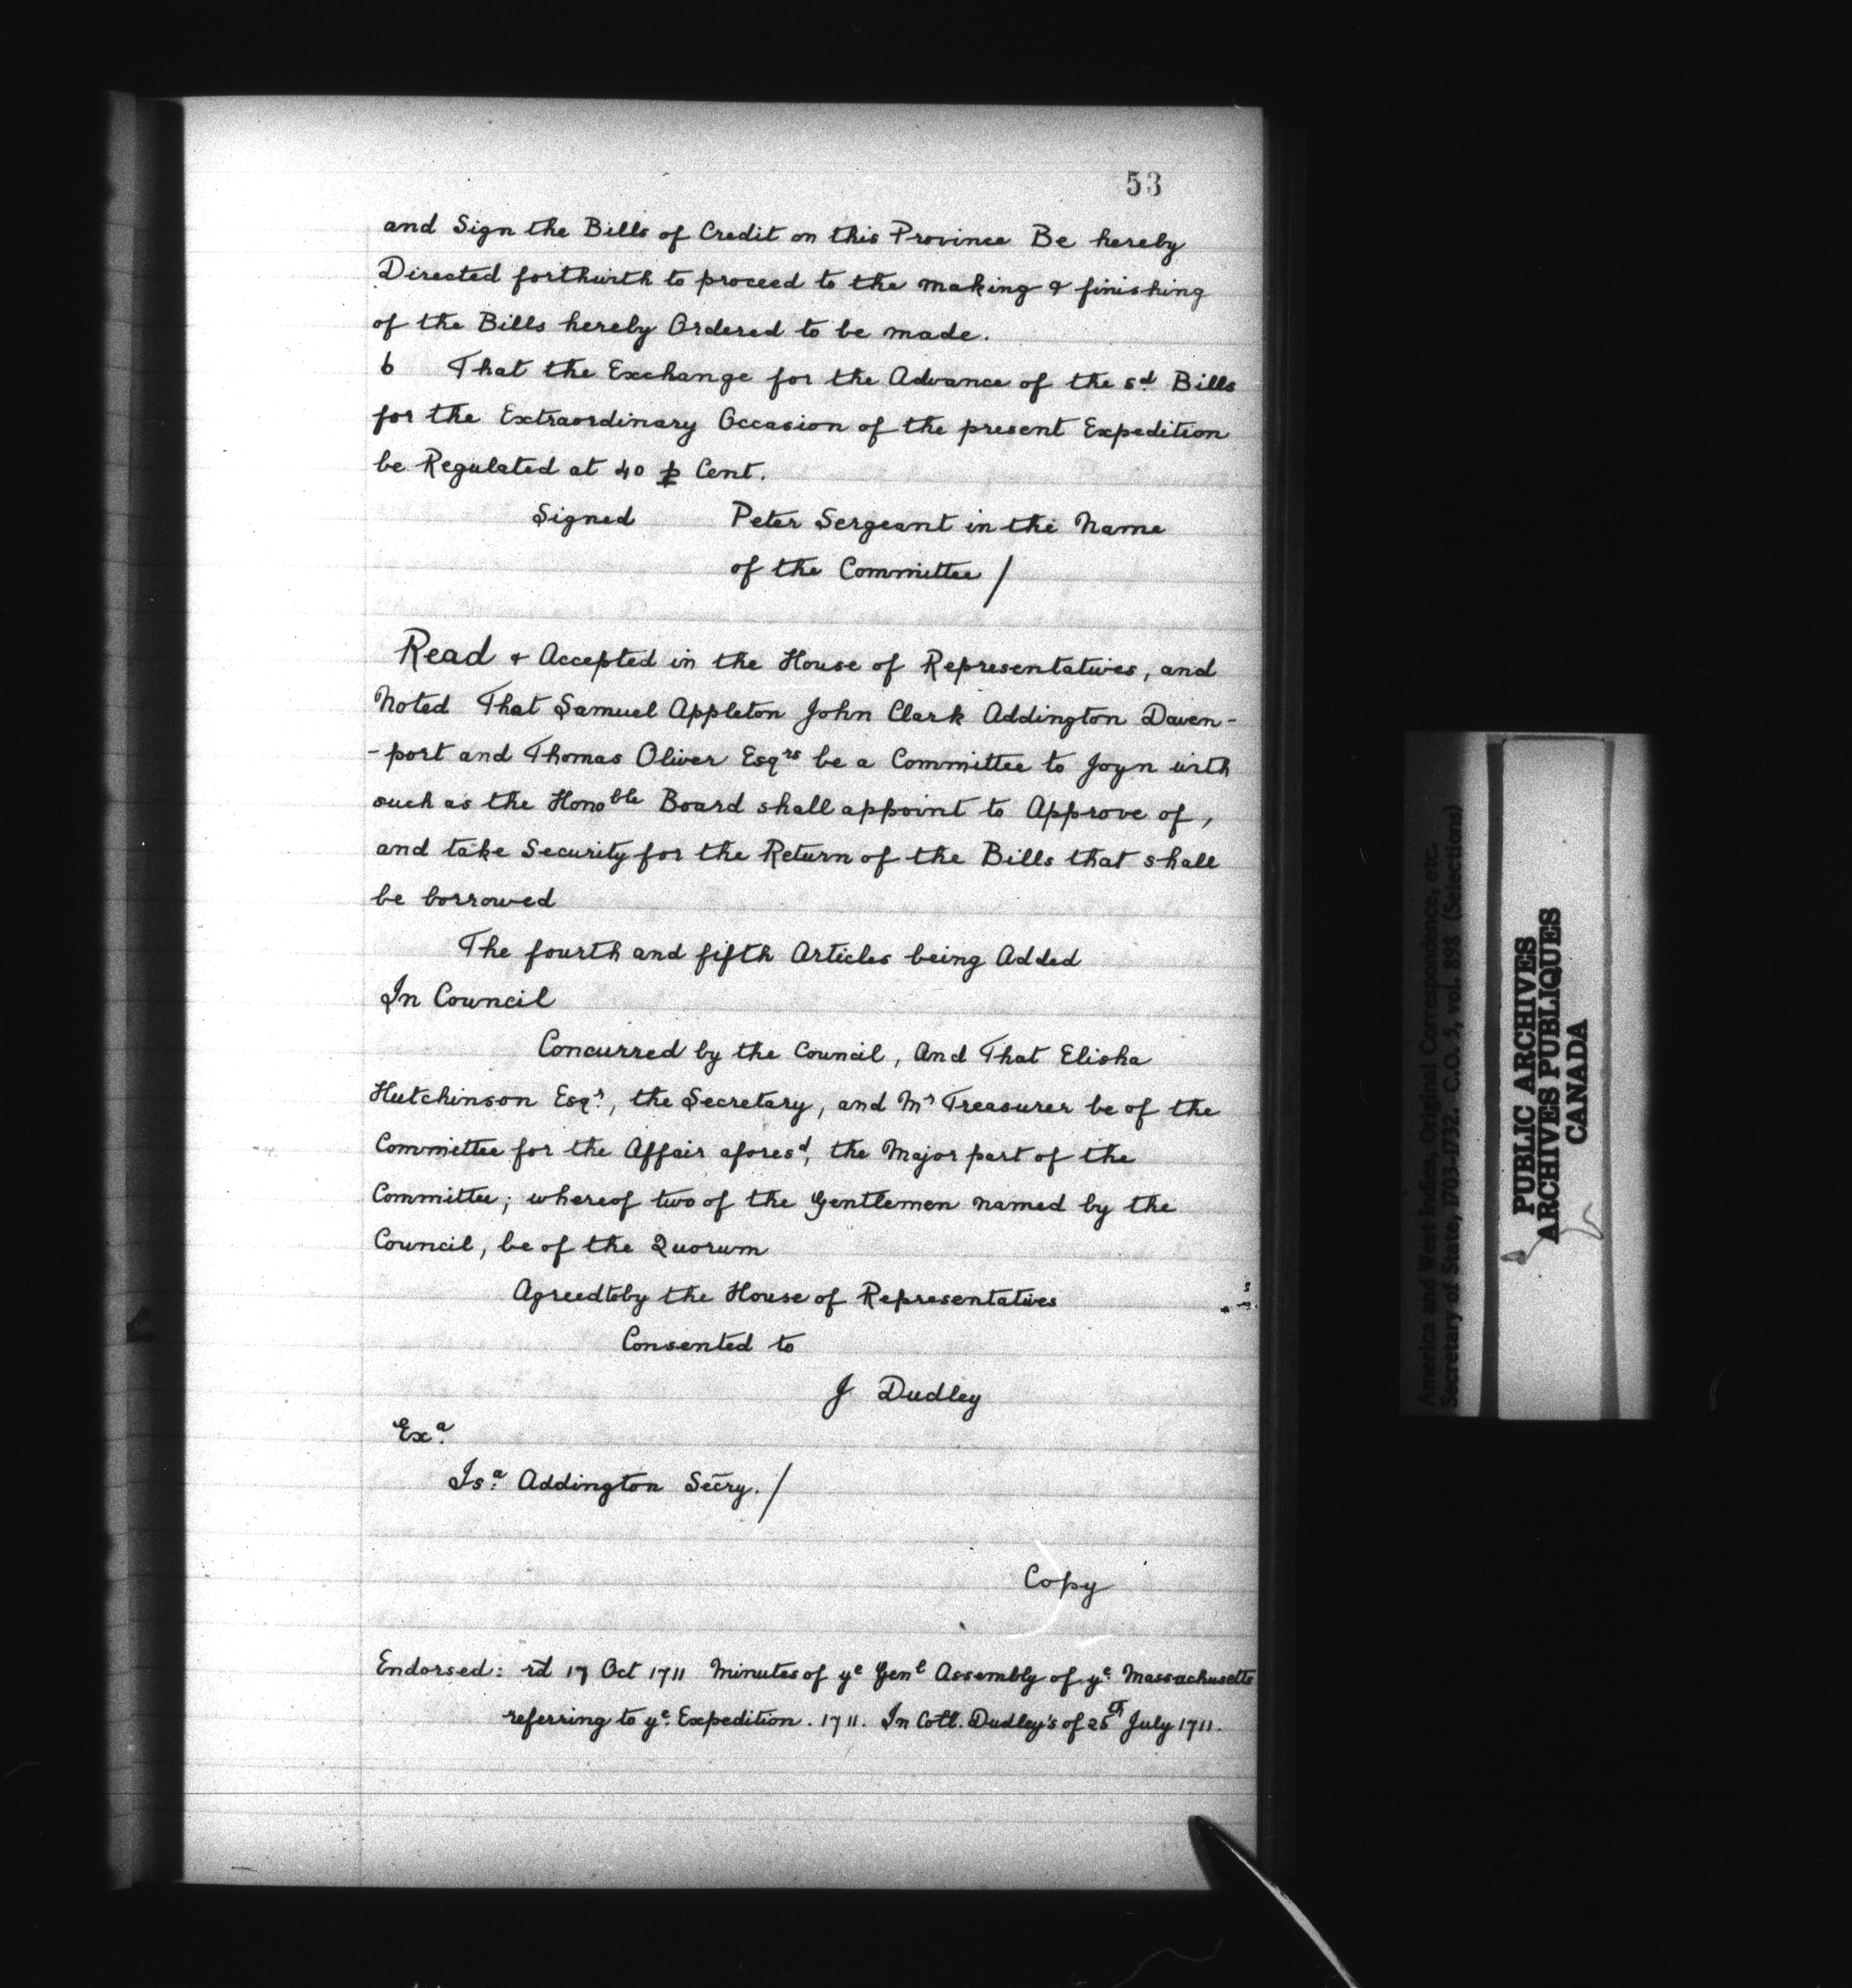 53
and Sign the Bills of Credit on this Province Be hereby
Directed forthwith to proceed to the making & finishing
of the Bills hereby Ordered to be made.
6 That the Exchange for the Advance of the sd Bills
for the Extraordinary Occasion of the present Expedition
be Regulated at 40 ⅌ Cent.
Signed Peter Sergeant in the Name
of the Committee /
Read & Accepted in the House of Representatives, and
Noted That Samuel Appleton John Clark Addington Daven-
-port and Thomas Oliver Esqrs be a Committee to Joyn with
such as the Honoble Board shall appoint to Approve of,
and take Security for the Return of the Bills that shall
be borrowed
The fourth and fifth Articles being Added
In Council
Concurred by the Council, And That Elisha
Hutchinson Esqr, the Secretary, and Mr Treasurer be of the
Committee for the Affair aforesd, the Major part of the
Committee; whereof two of the Gentlemen named by the
Council, be of the Quorum
Agreed to by the House of Representatives
Consented to
J Dudley
Exa
Isa Addington Secry. /
Copy
Endorsed: rd 17 Oct 1711 Minutes of ye Genl Assembly of ye Massachusetts
referring to ye Expedition. 1711. In Coll. Dudley's of 25th July 1711.
America and West Indies, Original Correspondence, etc.
Secretary of State, 1703-1732. C.O. 5, vol. 898 (Selections)
PUBLIC ARCHIVES
ARCHIVES PUBLIQUES
CANADA